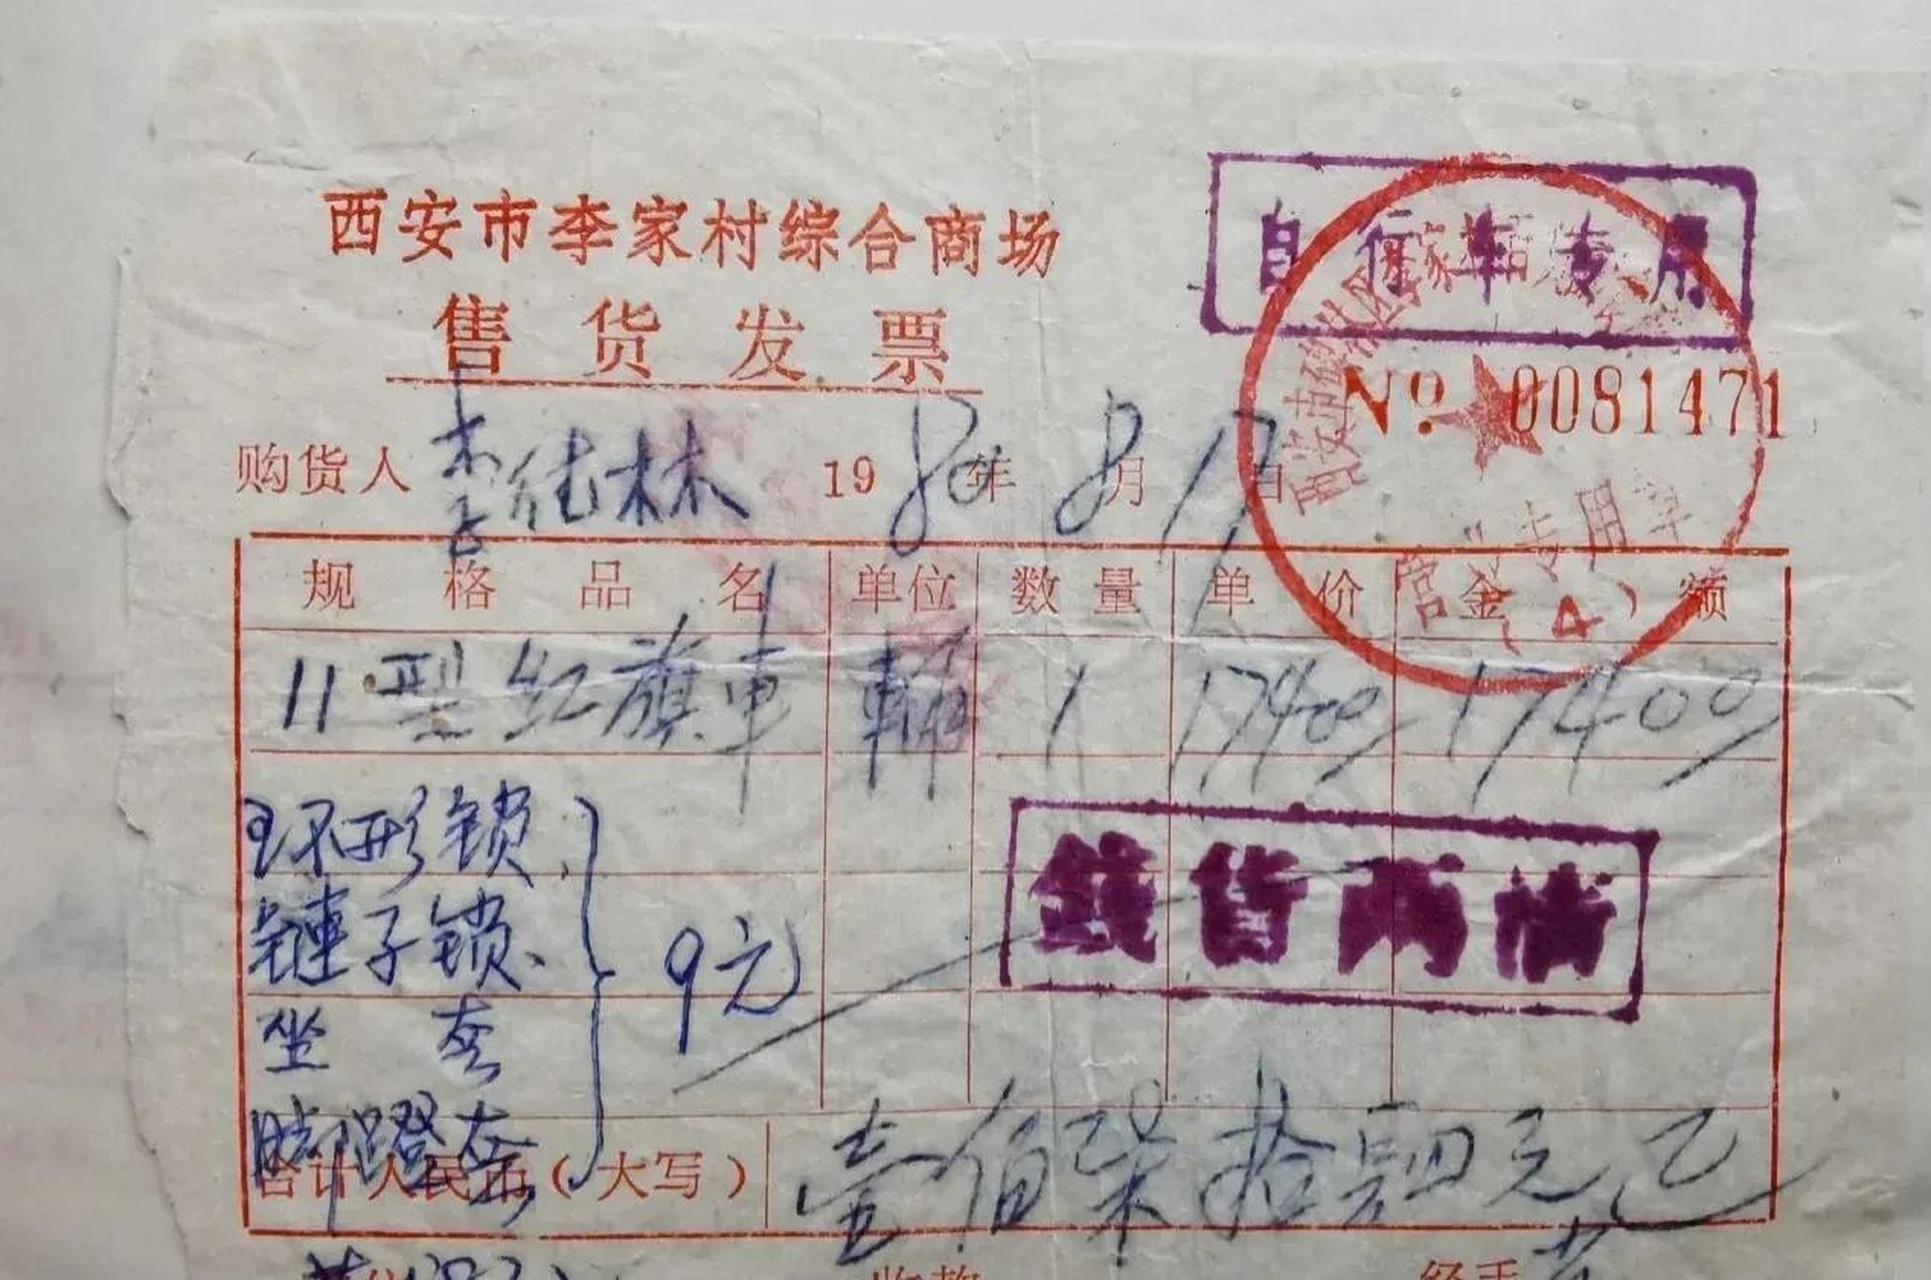 西安市李家村综合商场
自行车专用
售货发票
No 0081471
购货人 李 林 1980年8月17日
专用章
(4)
规格品名 单位 数量 单价 金额
11型红旗車 輛 1 17400 17400
环形锁
鏈子锁
坐套
脚蹬套
9元
錢货两清
合计人民币(大写) 壹佰柒拾肆元
收款 经手